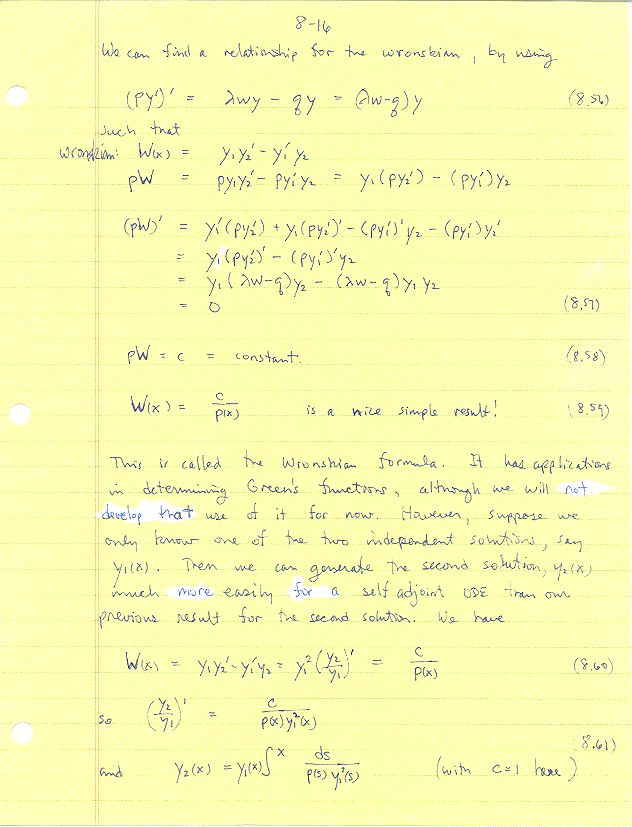 8-16
We can find a relationship for the wronskian, by using
(py')' = λwy - qy = (λw-q)y (8.56)
such that
wronskian: W(x) = y₁y₂' - y₁'y₂
pW = py₁y₂' - py₁'y₂ = y₁(py₂') - (py₁')y₂
(pW)' = y₁'(py₂') + y₁(py₂')' - (py₁')'y₂ - (py₁')y₂'
= y₁(py₂')' - (py₁')'y₂
= y₁(λw-q)y₂ - (λw-q)y₁y₂
= 0 (8.57)
pW = c = constant. (8.58)
W(x) = c/p(x) is a nice simple result! (8.59)
This is called the Wronskian formula. It has applications
in determining Green's functions, although we will not
develop that use of it for now. However, suppose we
only know one of the two independent solutions, say
y₁(x). Then we can generate the second solution, y₂(x)
much more easily for a self adjoint ODE than our
previous result for the second solution. We have
W(x) = y₁y₂' - y₁'y₂ = y₁²(y₂/y₁)' = c/p(x) (8.60)
so (y₂/y₁)' = c/p(x)y₁²(x)
and y₂(x) = y₁(x)∫ˣ ds/p(s)y₁²(s) (with c=1 here) (8.61)